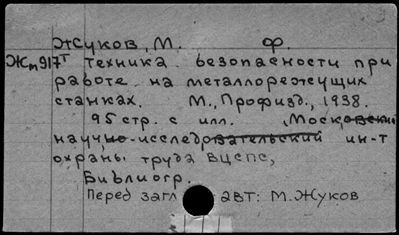 Жуков, М. Ф.
Жп917т Техника безопасности при
работе на металлорежущих
станках. М., Профизд., 1938.
95 стр. с илл. (Московский
научно-исследовательский ин-т
охраны труда ВЦСПС,
Библиогр.
Перед загл авт: М. Жуков